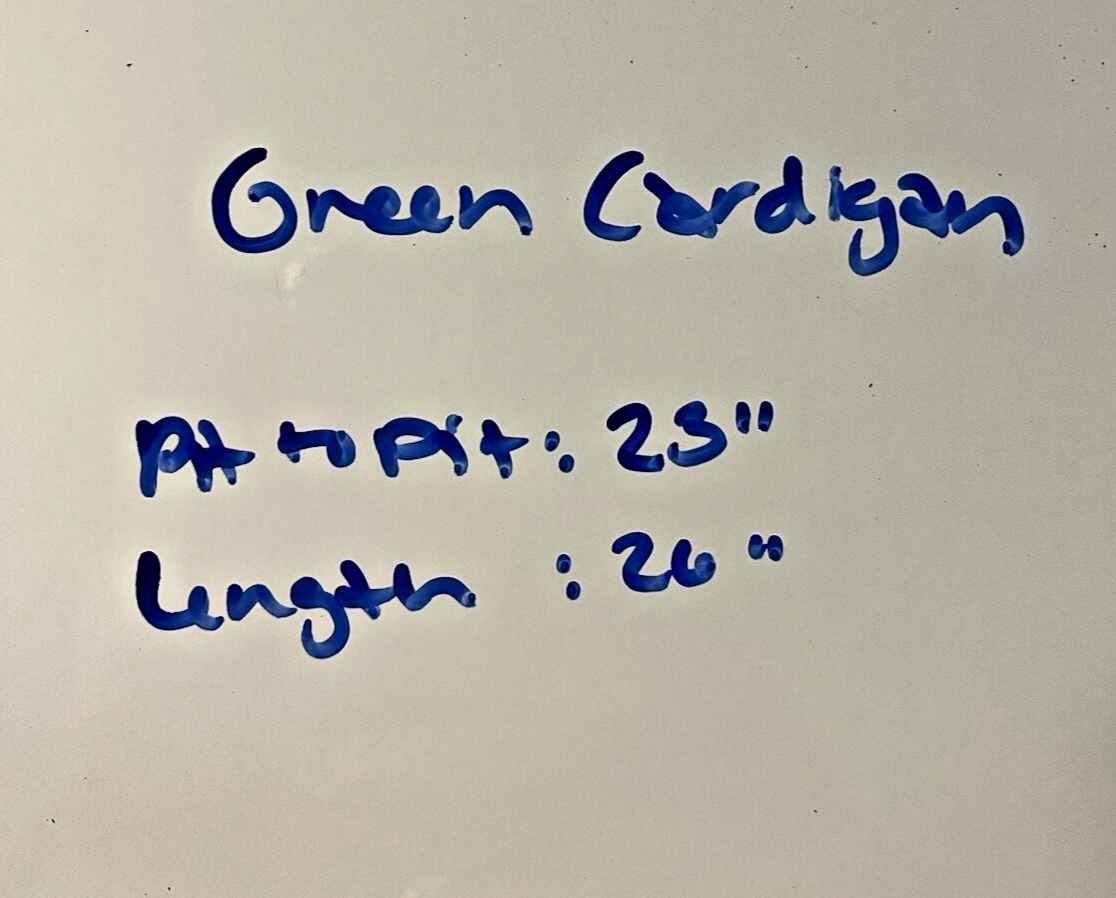 Green Cardigan
Pit to Pit: 23"
Length : 26"